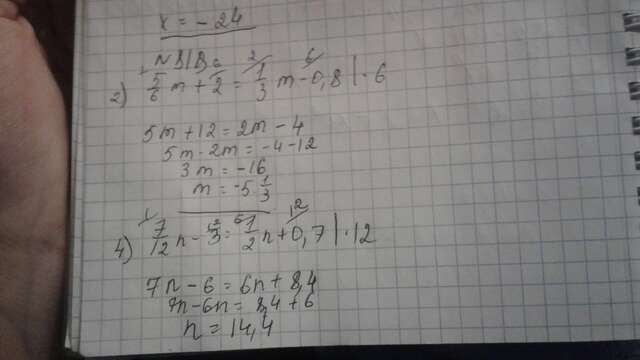 x = -24
2) 5/6 m + 2 = 1/3 m - 0,8 | · 6
5m + 12 = 2m - 4
5m - 2m = -4 - 12
3m = -16
m = -5 1/3
4) 7/12 n - = 1/2 n + 0,7 | · 12
7n - 6 = 6n + 8,4
7n - 6n = 8,4 + 6
n = 14,4